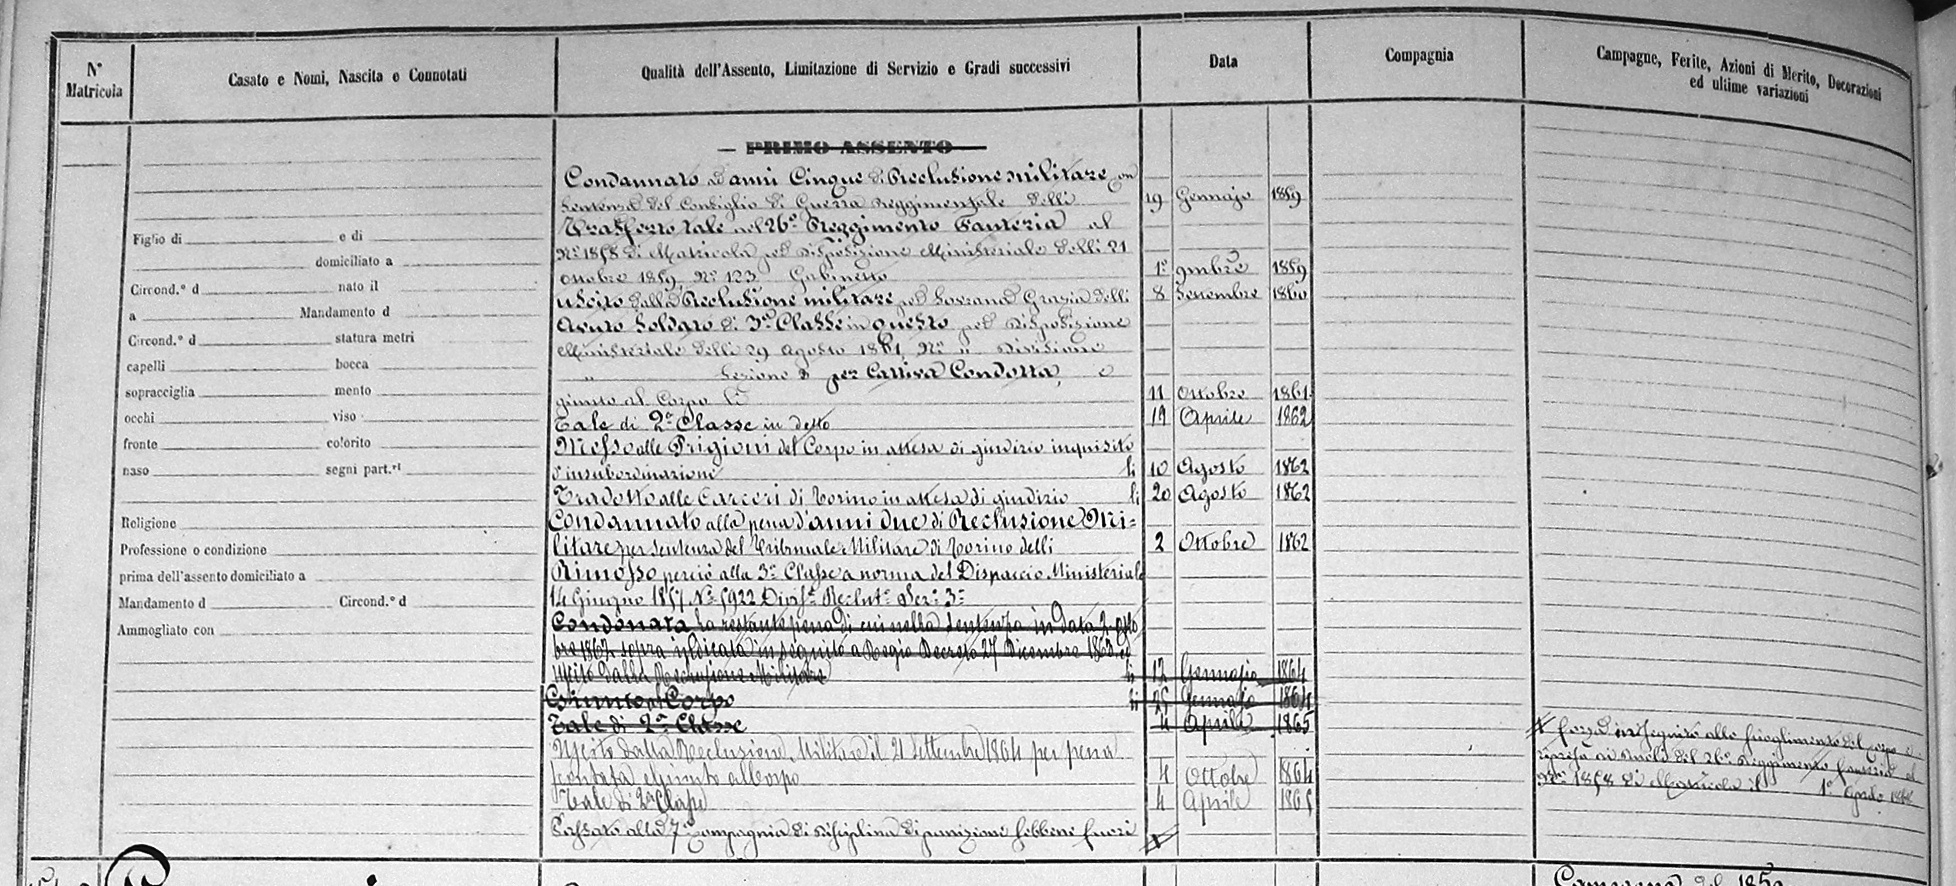 N° Matricola
Casato e Nomi, Nascita e Connotati
Qualità dell'Assento, Limitazione di Servizio e Gradi successivi
Data
Compagnia
Campagne, Ferite, Azioni di Merito, Decorazioni
ed ultime variazioni
— PRIMO ASSENTO —
Condannato ad anni Cinque di Reclusione militare con
Sentenza del Consiglio di Guerra Reggimentale delli 19 Gennajo 1859
Trasferto tale nel 26° Reggimento Fanteria al
N° 1858 di Matricola per disposizione Ministeriale delli 21
ottobre 1859, N° 123 Gabinetto 1° 9mbre 1859
uscito dalla Reclusione militare per Sovrana Grazia delli 8 Settembre 1860
Avuto Soldato di 3a Classe in questo per disposizione
Ministeriale delli 29 Agosto 1861, N° " Divisione
" Sezione per Cattiva Condotta, e
giunto al Corpo li 11 Ottobre 1861
Tale di 2a Classe in detto 19 Aprile 1862
Messo alle Prigioni del Corpo in attesa di giudizio inquisito
d'insubordinazione li 10 Agosto 1862
Tradotto alle Carceri di Torino in attesa di giudizio li 20 Agosto 1862
Condannato alla pena d'anni due di Reclusione Mi=
litare per sentenza del Tribunale Militare di Torino delli 2 Ottobre 1862
Rimosso perciò alla 3a Classe a norma del Dispaccio Ministeriale
14 Giugno 1857 N° 5922 Divise Reclute Sez. 3a
Condonata la restante pena di cui nella Sentenza in data 2 otto
bre 1862 sopra indicata in seguito a Regio Decreto 27 Dicembre 1863 ed
uscito dalla Reclusione Militare li 12 Gennajo 1864
Giunto al Corpo li 25 Gennajo 1864
Tale di 2a Classe 4 Aprile 1865
Uscito dalla Reclusione Militare il 21 Settembre 1864 per pena
scontata e giunto al Corpo 4 Ottobre 1864
Tale di 2a Classe 4 Aprile 1865
Passato alla 7a Compagnia di disciplina di punizione sebbene fuori
Figlio di e di
domiciliato a
Circond.° d nato il
a Mandamento d
Circond.° d statura metri
capelli bocca
sopracciglia mento
occhi viso
fronte colorito
naso segni part.ri
Religione
Professione o condizione
prima dell'assento domiciliato a
Mandamento d Circond.° d
Ammogliato con
forza in seguito allo scioglimento del corpo e
ripreso ai ruoli del 26° Reggimento fanteria al
N° 1858 di Matricola il 1° Aprile
Campagna del 1859